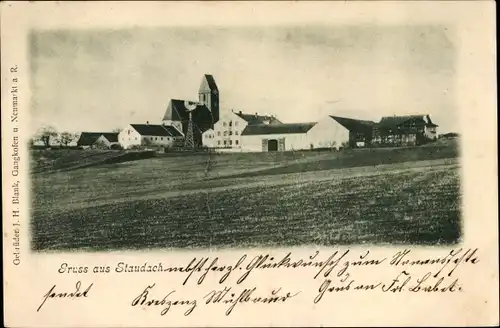 Gebrüder J. H. Blank, Gangkofen u. Neumarkt a. R.
Gruss aus Staudach nebst hergl. Glückwünsch zum Namensfeste
sendet Kreszenz Mühlbauer Gruss an Frl. Babet.